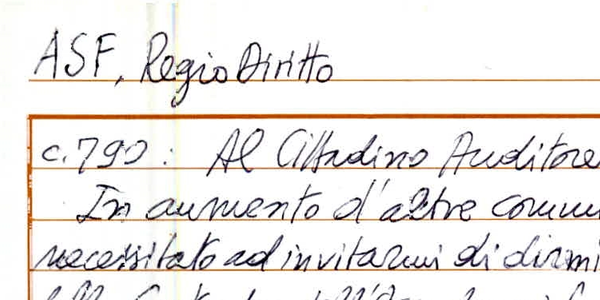 ASF, Regio Diritto
c. 790: Al Cittadino Auditore
In aumento d'altre commu
necessitato ad invitarmi di dirmi